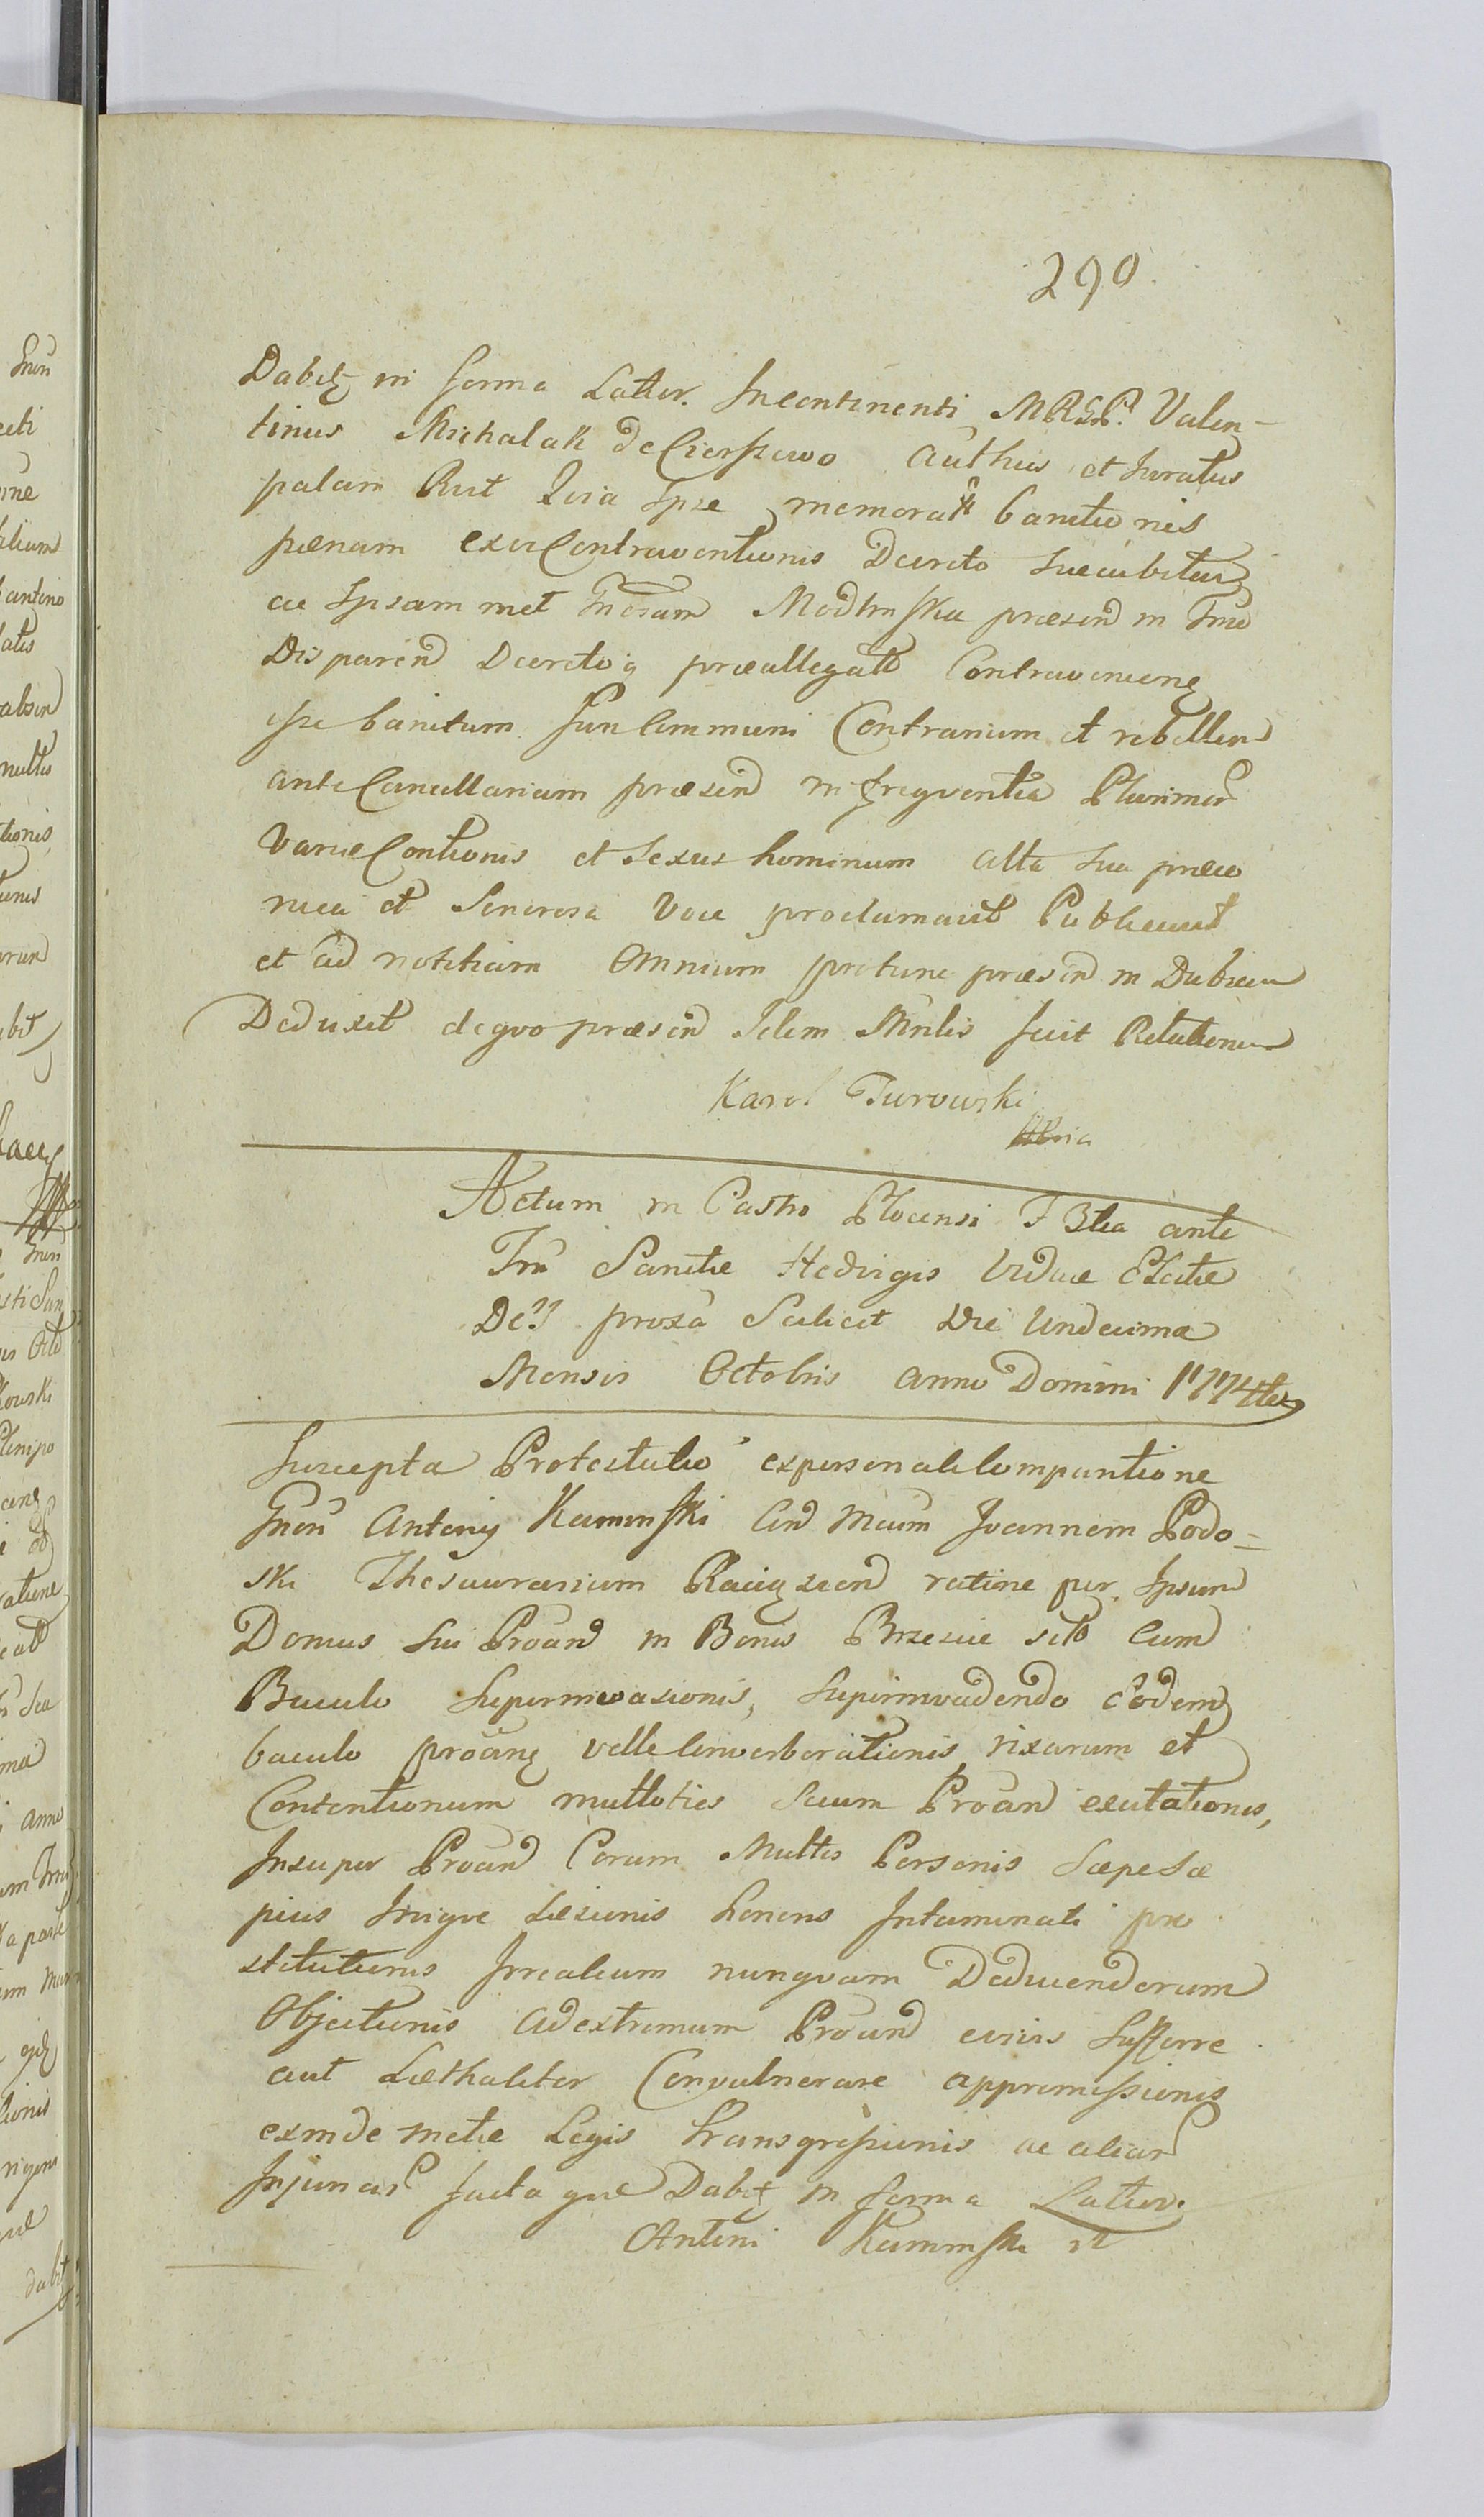 290.
Dabitz in forma Latior. Incontinenti MRGP. Valen-
tinus Michalak de Cierszewo Authus et Juratus
palam Rut Quia Ipse memorat banitionis
paenam exvi Contraventionis Decreto succubitur
ac Ipsam met Gnosam Modlinska praesend in Tmo
Disparend Decretoq praeallegato Contravenienz
esse banitum Jun Communi Contrarium et rebellem
ante Cancellariam praesend in freqventia Plurimor
variae Contionis et Sexus hominum alta sua praeco
nica et Sonorosa Voce proclamavit Publicavit
et ad notitiam Omnium protunc praesend in Dubiam
Deduxit de qvo praesend Idem Mnlis fecit Relationem
Karol Turowski
Actum in Castro Plocensi F 3tia ante
Fm Sanctae Hedvigis Viduae Electae
Dei proxa Scilicet Die Undecima
Mensis Octobris anno Domini 1774to
Suscepta Protestatio expersonali Comparitione
Gnen Antonij Kaminski Cnd Mcum Joannem Podo-
ski Thesaurarium Raciązien ratione per Ipsum
Domus sui Proand in Bonis Brzescie sito Cum
Baculo Superinvasionis, superinvadendo eodem
baculo proanz velle Converberationis rixarum et
Contentionum multoties secum Proand exitationis,
Insuper Proand Coram Multis Personis Saepe Sae
pius Inique Laesionis honoris Intaminati pro
stitutionis Irrealium nunqvam Deducendorum
Objectionis ad extremum Proand eviris Sufferre
aut Laethaliter Convulnerare appromissionis
exinde metae Legis transgressionis ac aliar
Injuriar facta que Dabitz in forma Latior.
Antoni Kaminski